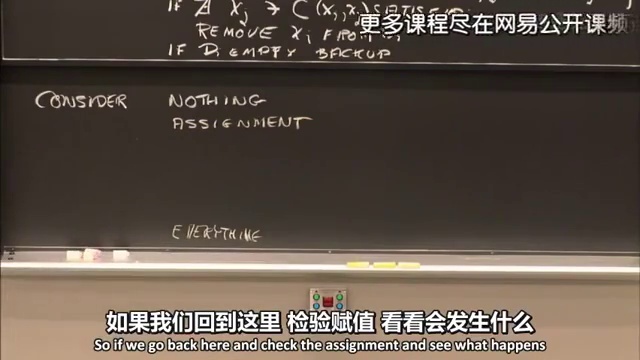 IF ∄ xj ∋ C(xi, xj) SATISFIED
更多课程尽在网易公开课频
REMOVE xi FROM
IF Di EMPTY BACKUP
CONSIDER NOTHING
ASSIGNMENT
EVERYTHING
如果我们回到这里 检验赋值 看看会发生什么
So if we go back here and check the assignment and see what happens